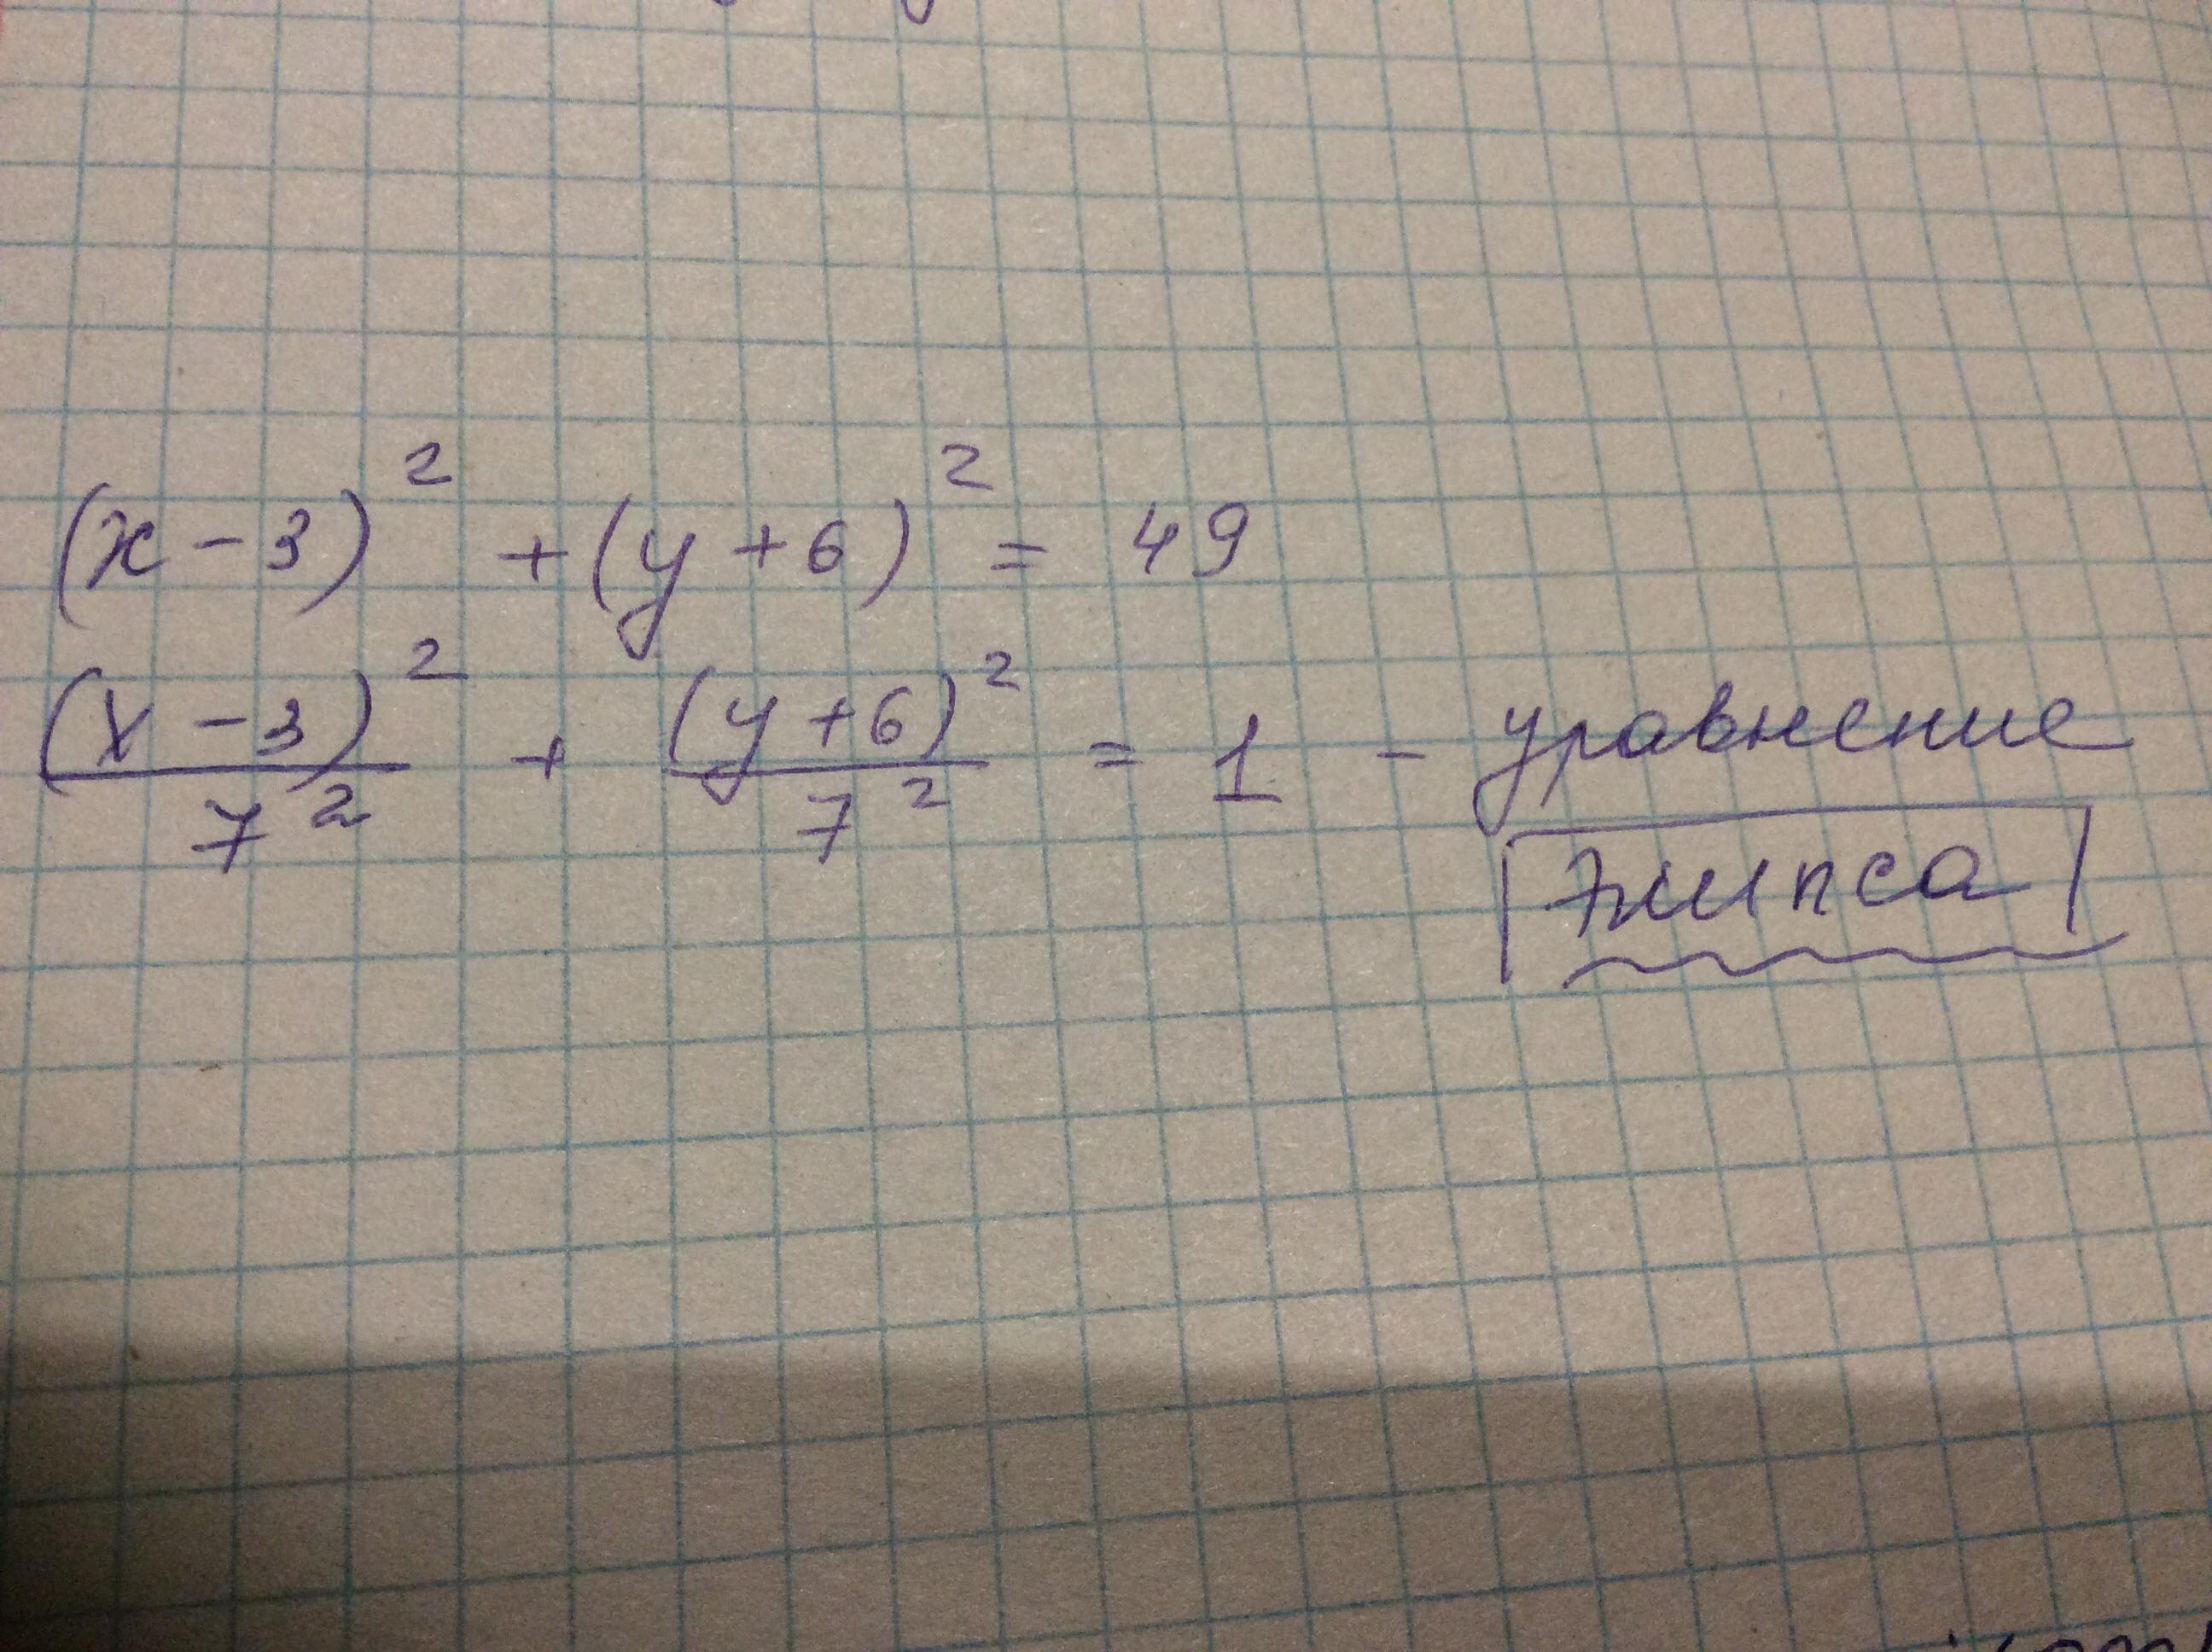 (x - 3)² + (y + 6)² = 49
(x - 3)²/7² + (y + 6)²/7² = 1 - уравнение
эллипса